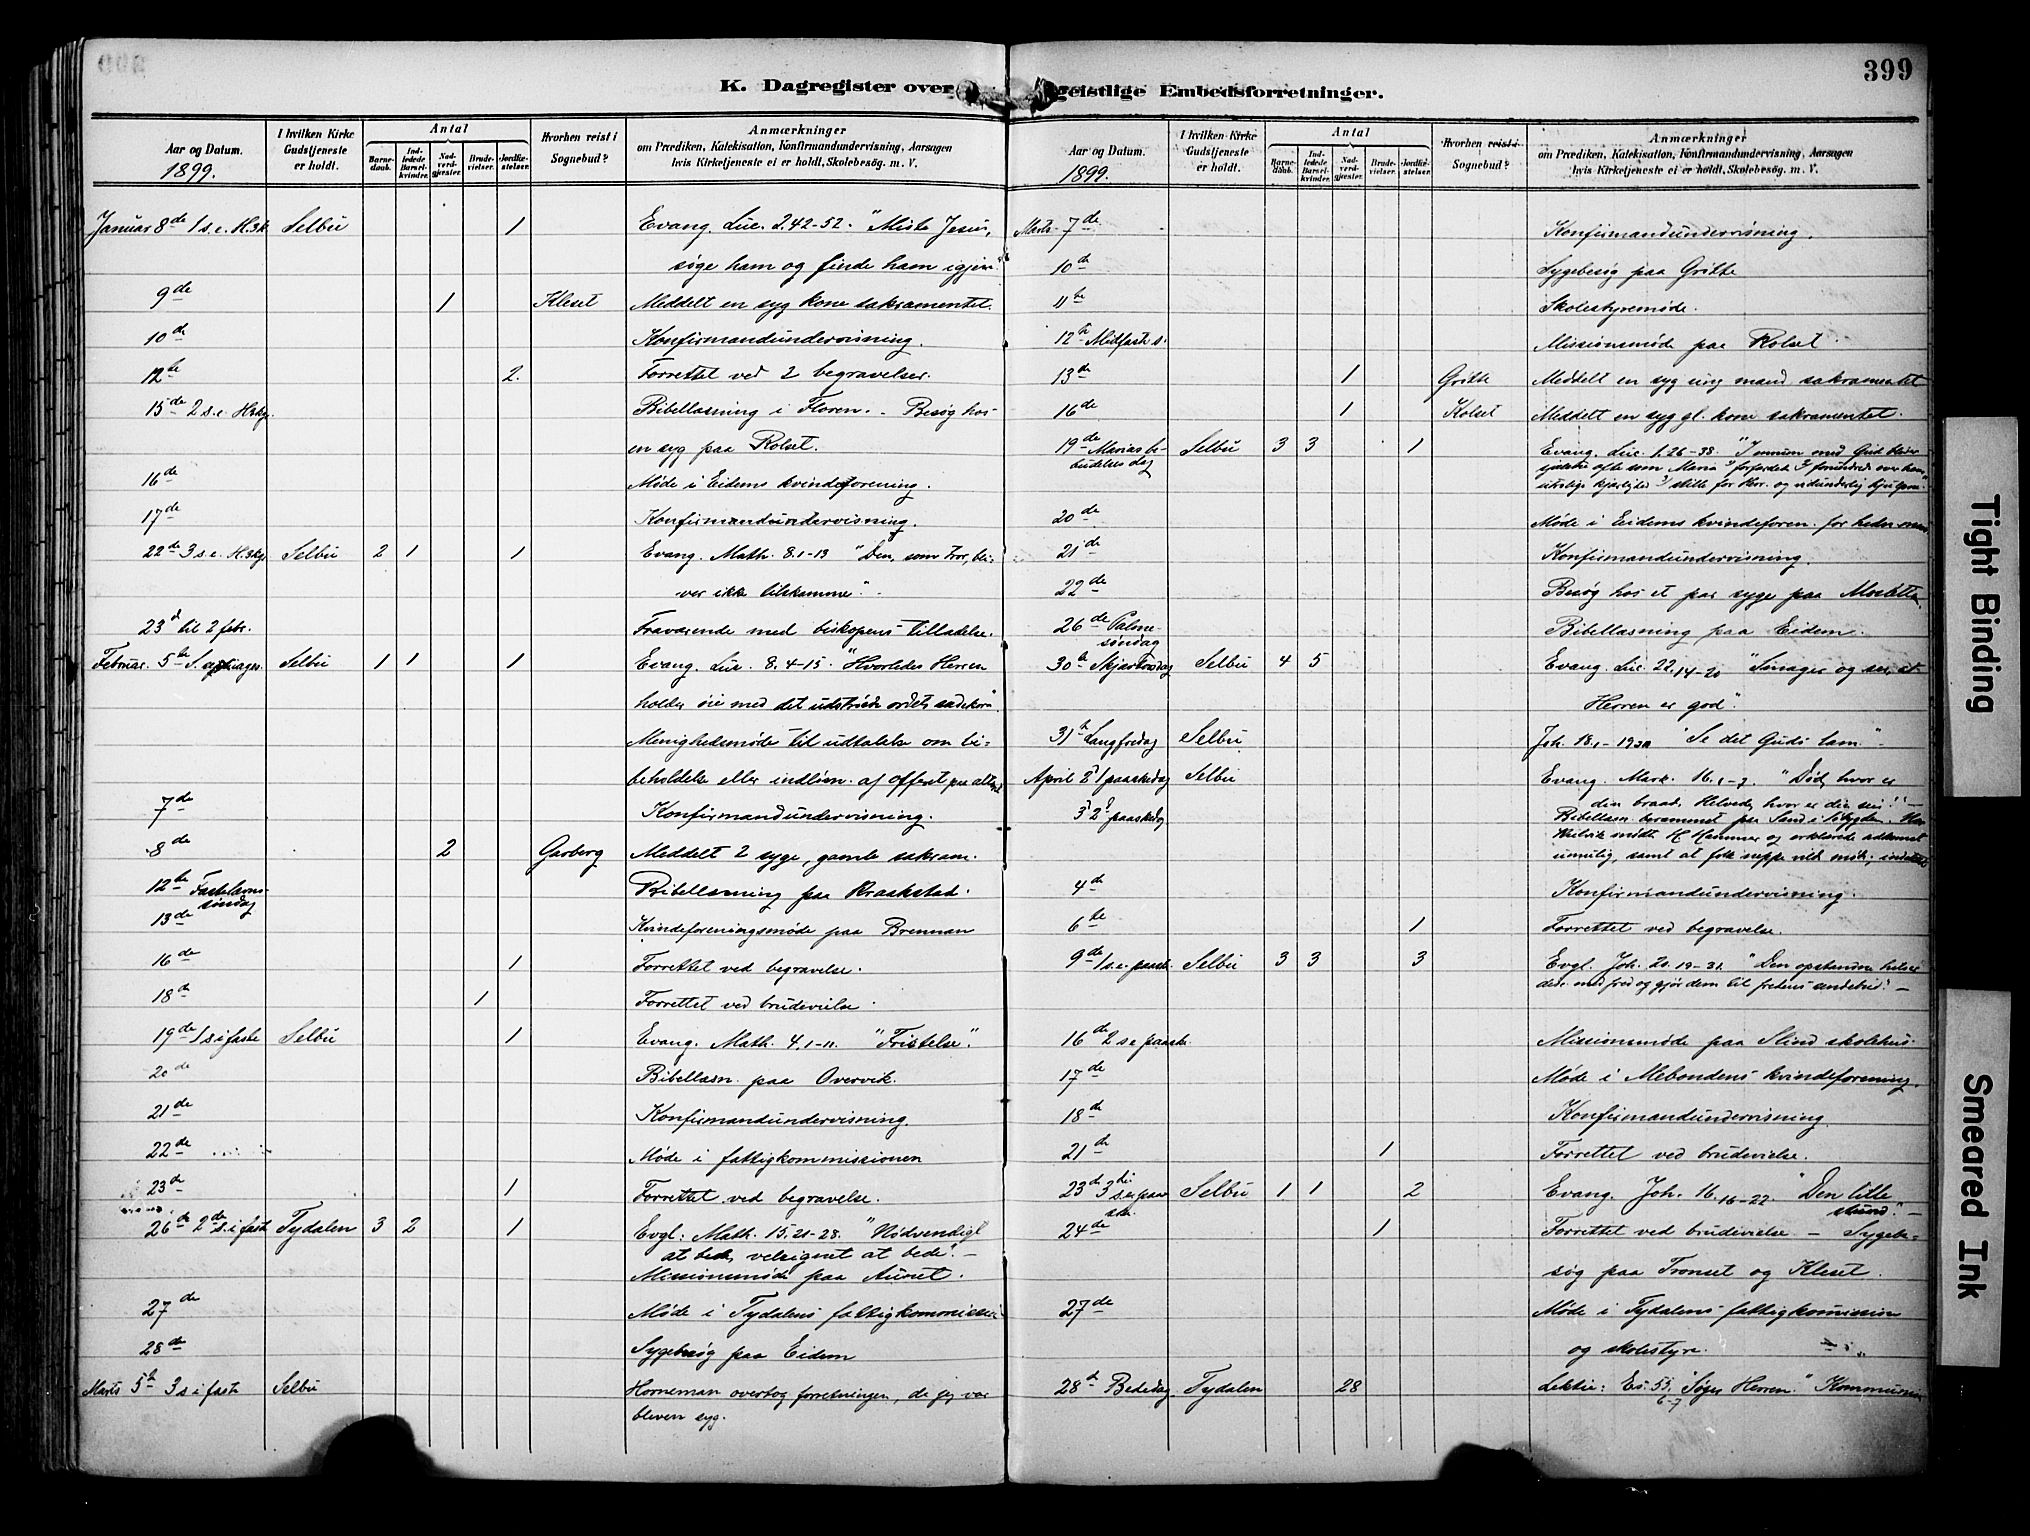 399
K. Dagregister over geistlige Embedsforretninger.
Aar og Datum.
1899.
I hvilken Kirke Gudstjeneste er holdt.
Antal
Barnedaab.
Indledede Barselkvinder.
Nadverdgjester.
Brudevielser.
Jordfæstelser.
Hvorhen reist i Sognebud?
Anmærkninger
om Prædiken, Katekisation, Konfirmandundervisning, Aarsagen
hvis Kirketjeneste ei er holdt, Skolebesøg. m. V.
Januar 8de 1 s. e. H.3k. Selbu 1 Evang. Luc. 2.42-52. "Miste Jesus,
søge ham og finde ham igjen."
9de 1 Kleset Meddelt en syg kone sakramentet.
10de Konfirmandundervisning.
12te 2. Forrettet ved 2 begravelser.
15de 2 s. e. H.3kg. Bibellæsning i Floren. - Besøg hos
en syg paa Rolset.
16de Møde i Eidems kvindeforening.
17de Konfirmandundervisning.
22de 3 s. e. H.3kg. Selbu 2 1 1 Evang. Math. 8.1-13 "Den, som tror, bli-
ver ikke tilskamme".
23d til 2 febr. Fraværende med biskopens tilladelse.
Februar. 5te S. Selbu 1 1 1 Evang. Luc. 8.4-15. "Hvorledes Herren
holder øie med det udstrøede ordets sædekorn".
Menighedsmøde til udtalelse om bi-
beholdelse eller indløsn. af offeret paa alteret
7de Konfirmandundervisning.
8de 2 Garberg Meddelt 2 syge, gamle sakram.
12te Fastelavns- Bibellæsning paa Kraakstad.
søndag
13de Kvindeforeningsmøde paa Brennan
16de 1 Forrettet ved begravelse.
18de 1 Forrettet ved brudevielse.
19de 1 s i faste Selbu 1 Evang. Math. 4.1-11. "Fristelse".
20de Bibellæsn. paa Overvik.
21de Konfirmandundervisning.
22de Møde i fattigkommissionen
23de 1 Forrettet ved begravelse.
26de 2de s. i fast. Tydalen 3 2 1 Evgl. Math. 15.21-28. "Nødvendigt
at bede, velsignet at bede". -
Missionsmøde paa Aunet.
27de Møde i Tydalens fattigkommission
28de Sygebesøg paa Eidem
Marts 5te 3 s i faste Selbu Horneman overtog forretningen, da jeg var
bleven syg.
Aar og Datum.
1899.
I hvilken Kirke Gudstjeneste er holdt.
Antal
Barnedaab.
Indledede Barselkvinder.
Nadverdgjester.
Brudevielser.
Jordfæstelser.
Hvorhen reist i Sognebud?
Anmærkninger
om Prædiken, Katekisation, Konfirmandundervisning, Aarsagen
hvis Kirketjeneste ei er holdt, Skolebesøg. m. V.
Marts 7de Konfirmandundervisning.
10de Sygebesøg paa Gritte
11te Skolestyremøde.
12te Midfaste s. Missionsmøde paa Rolset.
13de 1 Gritte Meddelt en syg ung mand sakramentet
16de 1 Rolset Meddelt en syg gl. kone sakramentet.
19de Marias be- Selbu 3 3 1 Evang. Luc. 1.26-38. "I ennum med Gud bliver
budelses dag sjælen ofte som Maria forfærdet forundret over hans
kjærlighed stille for Herr. og vidunderlig hjulpen."
20de Møde i Eidems kvindeforen. for
21de Konfirmandundervisning.
22de Besøg hos et par syge paa Moslette
26de Palme- Bibellæsning paa Eidem.
søndag
30te Skjærtorsdag Selbu 4 5 Evang. Luc. 22.14-20 "Smager og ser, at
Herren er god".
31te Langfredag Selbu Joh. 18.1-19.30 "Se det Guds lam." -
April 2d 1 paaskedag Selbu Evang. Mark. 16.1-7. "Død, hvor er
din braad. Helvede, hvor er din seir"! -
3d 2d paaskedag Bibellæsn. berammet paa Sand i Selbygden.
mødte H. Hammer og erklærede adkomst
umulig, samt at folk neppe vilde møde;
4de Konfirmandundervisning.
6te 1 Forrettet ved begravelse.
9de 1 s. e. paaske Selbu 3 3 3 Evgl. Joh. 20.19-31. "Den opstandne hilser
med fred og gjør dem til fredens sendebud". -
16de 2 s e paaske Missionsmøde paa Slind skolehus.
17de Møde i Mebondens kvindeforening.
18de Konfirmandundervisning.
21de 1 Forrettet ved brudevielse.
23de 3die s. e. paa- Selbu 1 1 2 Evang. Joh. 16.16-22. "Den lille
ske stund". -
24de 1 Forrettet ved brudevielse - Sygebe-
søg paa Tronset og Kleset.
27de Møde i Tydalens fattigkomission
og skolestyre.
28de Bededag Tydalen 28 Lektie: Es. 55.6-7 "Søger Herren." Kommunion
Tight Binding
Smeared Ink